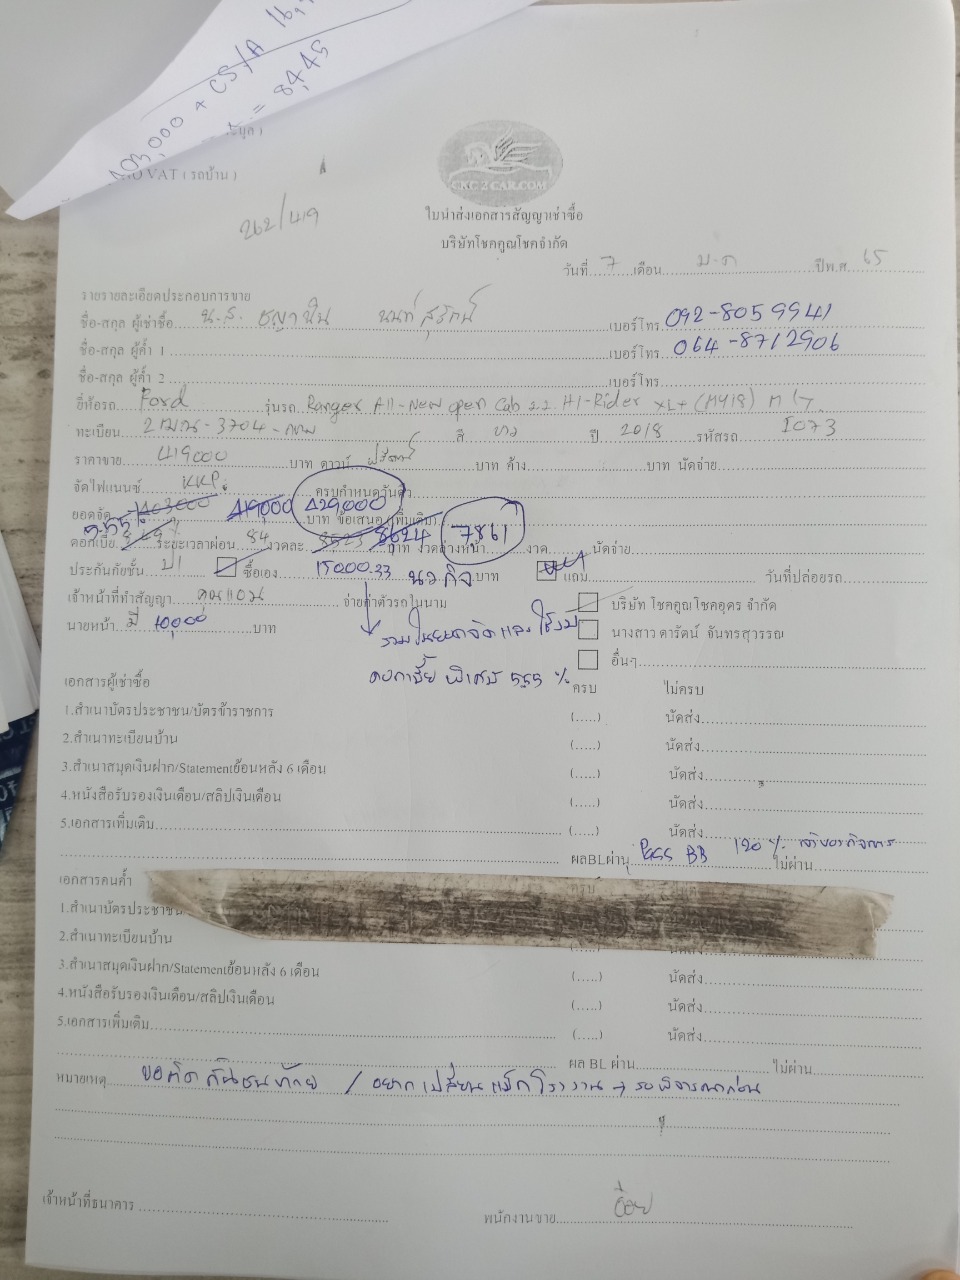 103,000 + CS/A 16,
= 8,445
NO VAT ( รถบ้าน )
262/419
CKC 2 CAR.COM
ใบนำส่งเอกสารสัญญาเช่าซื้อ
บริษัทโชคคูณโชคจำกัด
วันที่ 7 เดือน ม.ค ปีพ.ศ 65
รายรายละเอียดประกอบการขาย
ชื่อ-สกุล ผู้เช่าซื้อ น.ส. เบอร์โทร 092-8059941
ชื่อ-สกุล ผู้ค้ำ 1 เบอร์โทร 064-8712906
ชื่อ-สกุล ผู้ค้ำ 2 เบอร์โทร
ยี่ห้อรถ Ford รุ่นรถ Ranger All-New open Cab 2.2 HI-Rider XL+ (MY18) M/T
ทะเบียน 3704 - กทม สี ขาว ปี 2018 รหัสรถ I073
ราคาขาย 419000 บาท ดาวน์ ฟรีดาวน์ บาท ค้าง บาท นัดจ่าย
จัดไฟแนนซ์ KKP. ครบกำหนดวันตัว
ยอดจัด 403000 419,000 429,000 บาท ข้อเสนอ (เพิ่มเติม)
5.55%
ดอกเบี้ย ระยะเวลาผ่อน 84 งวดละ 8523 8624 7861 บาท งวดล่วงหน้า งวด นัดจ่าย
ประกันภัยชั้น ป1 ซื้อเอง 15000.33 นวกิจ บาท แถม วันที่ปล่อยรถ
เจ้าหน้าที่ทำสัญญา จ่ายค่าตัวรถในนาม บริษัท โชคคูณโชคอุดร จำกัด
นายหน้า มี 10,000 บาท นางสาว ดารัตน์ จันทรสุวรรณ
รวมในยอดจัดและ
อื่นๆ
ดอกเบี้ย พิเศษ 5.55 %
เอกสารผู้เช่าซื้อ ครบ ไม่ครบ
1.สำเนาบัตรประชาชน/บัตรข้าราชการ (.....) นัดส่ง
2.สำเนาทะเบียนบ้าน (.....) นัดส่ง
3.สำเนาสมุดเงินฝาก/Statementย้อนหลัง 6 เดือน (.....) นัดส่ง
4.หนังสือรับรองเงินเดือน/สลิปเงินเดือน (.....) นัดส่ง
5.เอกสารเพิ่มเติม (.....) นัดส่ง
ผลBLผ่าน Pass BB 120 % เจ้าของกิจการ ไม่ผ่าน
เอกสารคนค้ำ ครบ
1.สำเนาบัตรประชาชน
2.สำเนาทะเบียนบ้าน
3.สำเนาสมุดเงินฝาก/Statementย้อนหลัง 6 เดือน (.....) นัดส่ง
4.หนังสือรับรองเงินเดือน/สลิปเงินเดือน (.....) นัดส่ง
5.เอกสารเพิ่มเติม (.....) นัดส่ง
ผล BL ผ่าน ไม่ผ่าน
หมายเหตุ ขอติดกันชนท้าย / อยากเปลี่ยนแม็กโรงงาน → รอพิจารณาก่อน
เจ้าหน้าที่ธนาคาร
พนักงานขาย